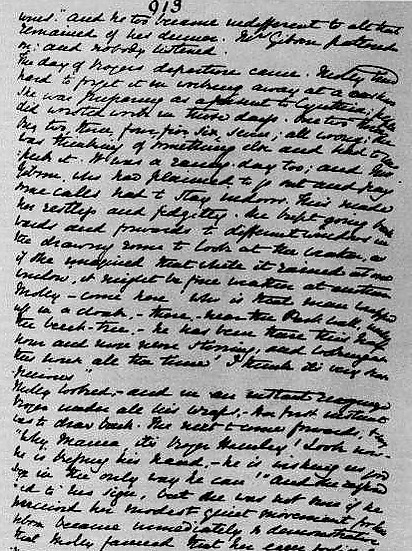 913
and he too became indifferent to all that
remained of his dinner. Mrs Gibson pattered
on: and nobody listened.
The day of Rogers departure came. Molly tried
hard to forget it in working away at a cushion
she was preparing as a present to Cynthia; people
did worsted-work in those days. One, two, three
One, two, three, four, five, six, seven; all wrong; she
was thinking of something else and had to un-
pick it. It was a rainy day too; and Mrs
Gibson, who had planned to go out and pay
some calls had to stay indoors. This made
her restless and fidgetty. She kept going back-
wards and forwards to different windows in
the drawing room to look at the weather, as
if she imagined that while it rained at one
window, it might be fine weather at another.
Molly - come here! who is that man wrapped
up in a cloak, - there, - near the Park wall, under
the beech-tree, - he has been there this half-
hour and more, never stirring, and looking at
this house all the time! I think it very sus-
picious."
Molly looked, - and in an instant recognized
Roger under all his wraps, - her first instinct
was to draw back. The next to come forwards,
"Why Mamma its Roger Hamley! Look now-
he is kissing his hand, - he is wishing us good
bye in the only way he can!" And she respon-
d to his sign, but she was not sure if he
perceived her modest quiet movement, for Mrs
Gibson became immediately so demonstrative
that Molly fancied that